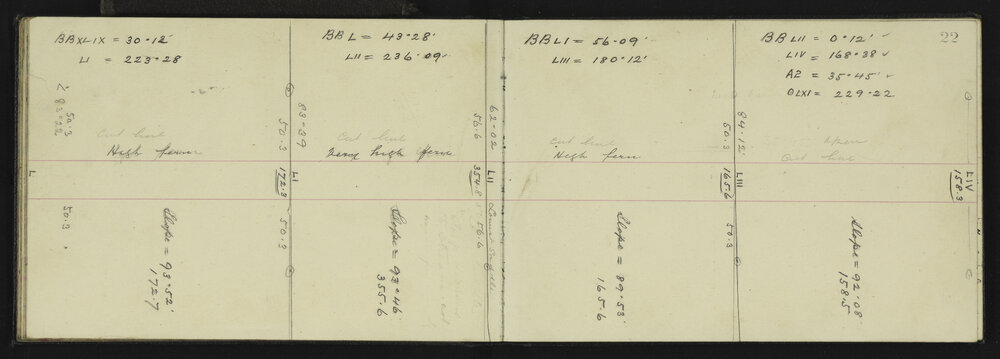 BB XLIX = 30°12'
LI = 223°28
50.3
83°22
Cut line
High fern
L
50.3
Slope = 93°52'
172.7
83°39
50.3
LI
172.3
50.3
BB L = 43°28'
LII = 236°09
Cut line
Very high fern
Slope = 93°46
355.6
62°02
56.6
LII
354.8
56.6
BB LI = 56°09'
LIII = 180°12'
Cut line
High fern
Slope = 89°53'
165.6
84°12'
50.3
LIII
165.6
50.3
22
BB LII = 0°12' ✓
LIV = 168°38 ✓
A2 = 35°45' ✓
OLXI = 229°22
Cut line
Slope = 92°08'
158.5
LIV
158.3